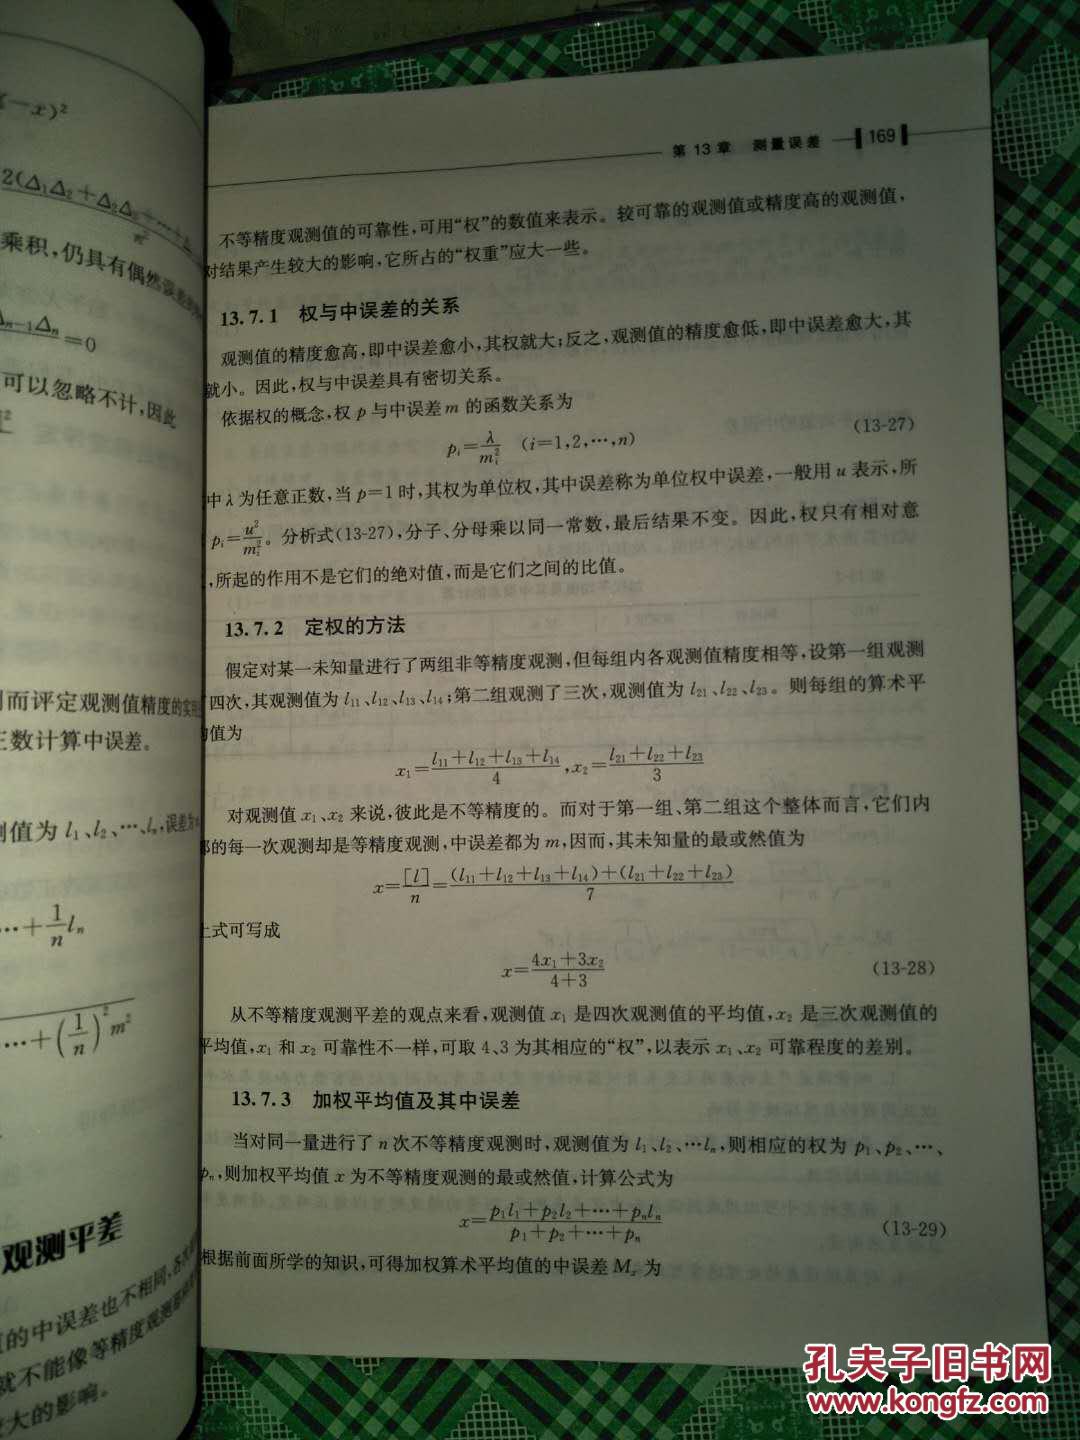 -x)²
2(Δ₁Δ₂+Δ₂Δ₃+…+
n²
乘积,仍具有偶然误差的
n-1Δn/n=0
可以忽略不计,因此
而评定观测值精度的实用
三数计算中误差。
测值为 l₁、l₂、…、lₙ,误差为
…+1/n lₙ
…+(1/n)²m²
观测平差
的中误差也不相同,各次
就不能像等精度观测那
大的影响。
第 13 章 测量误差 169
不等精度观测值的可靠性,可用“权”的数值来表示。较可靠的观测值或精度高的观测值,
对结果产生较大的影响,它所占的“权重”应大一些。
13.7.1 权与中误差的关系
观测值的精度愈高,即中误差愈小,其权就大;反之,观测值的精度愈低,即中误差愈大,其
就小。因此,权与中误差具有密切关系。
依据权的概念,权 p 与中误差 m 的函数关系为
pᵢ=λ/mᵢ² (i=1,2,…,n) (13-27)
中 λ 为任意正数,当 p=1 时,其权为单位权,其中误差称为单位权中误差,一般用 u 表示,所
pᵢ=u²/mᵢ²。分析式(13-27),分子、分母乘以同一常数,最后结果不变。因此,权只有相对意
,所起的作用不是它们的绝对值,而是它们之间的比值。
13.7.2 定权的方法
假定对某一未知量进行了两组非等精度观测,但每组内各观测值精度相等,设第一组观测
了四次,其观测值为 l₁₁、l₁₂、l₁₃、l₁₄;第二组观测了三次,观测值为 l₂₁、l₂₂、l₂₃。则每组的算术平
均值为
x₁=(l₁₁+l₁₂+l₁₃+l₁₄)/4,x₂=(l₂₁+l₂₂+l₂₃)/3
对观测值 x₁、x₂ 来说,彼此是不等精度的。而对于第一组、第二组这个整体而言,它们内
部的每一次观测却是等精度观测,中误差都为 m,因而,其未知量的最或然值为
x=[l]/n=((l₁₁+l₁₂+l₁₃+l₁₄)+(l₂₁+l₂₂+l₂₃))/7
上式可写成
x=(4x₁+3x₂)/(4+3) (13-28)
从不等精度观测平差的观点来看,观测值 x₁ 是四次观测值的平均值,x₂ 是三次观测值的
平均值,x₁ 和 x₂ 可靠性不一样,可取 4、3 为其相应的“权”,以表示 x₁、x₂ 可靠程度的差别。
13.7.3 加权平均值及其中误差
当对同一量进行了 n 次不等精度观测时,观测值为 l₁、l₂、…lₙ,则相应的权为 p₁、p₂、…、
pₙ,则加权平均值 x 为不等精度观测的最或然值,计算公式为
x=(p₁l₁+p₂l₂+…+pₙlₙ)/(p₁+p₂+…+pₙ) (13-29)
根据前面所学的知识,可得加权算术平均值的中误差 Mₓ 为
孔夫子旧书网
www.kongfz.com